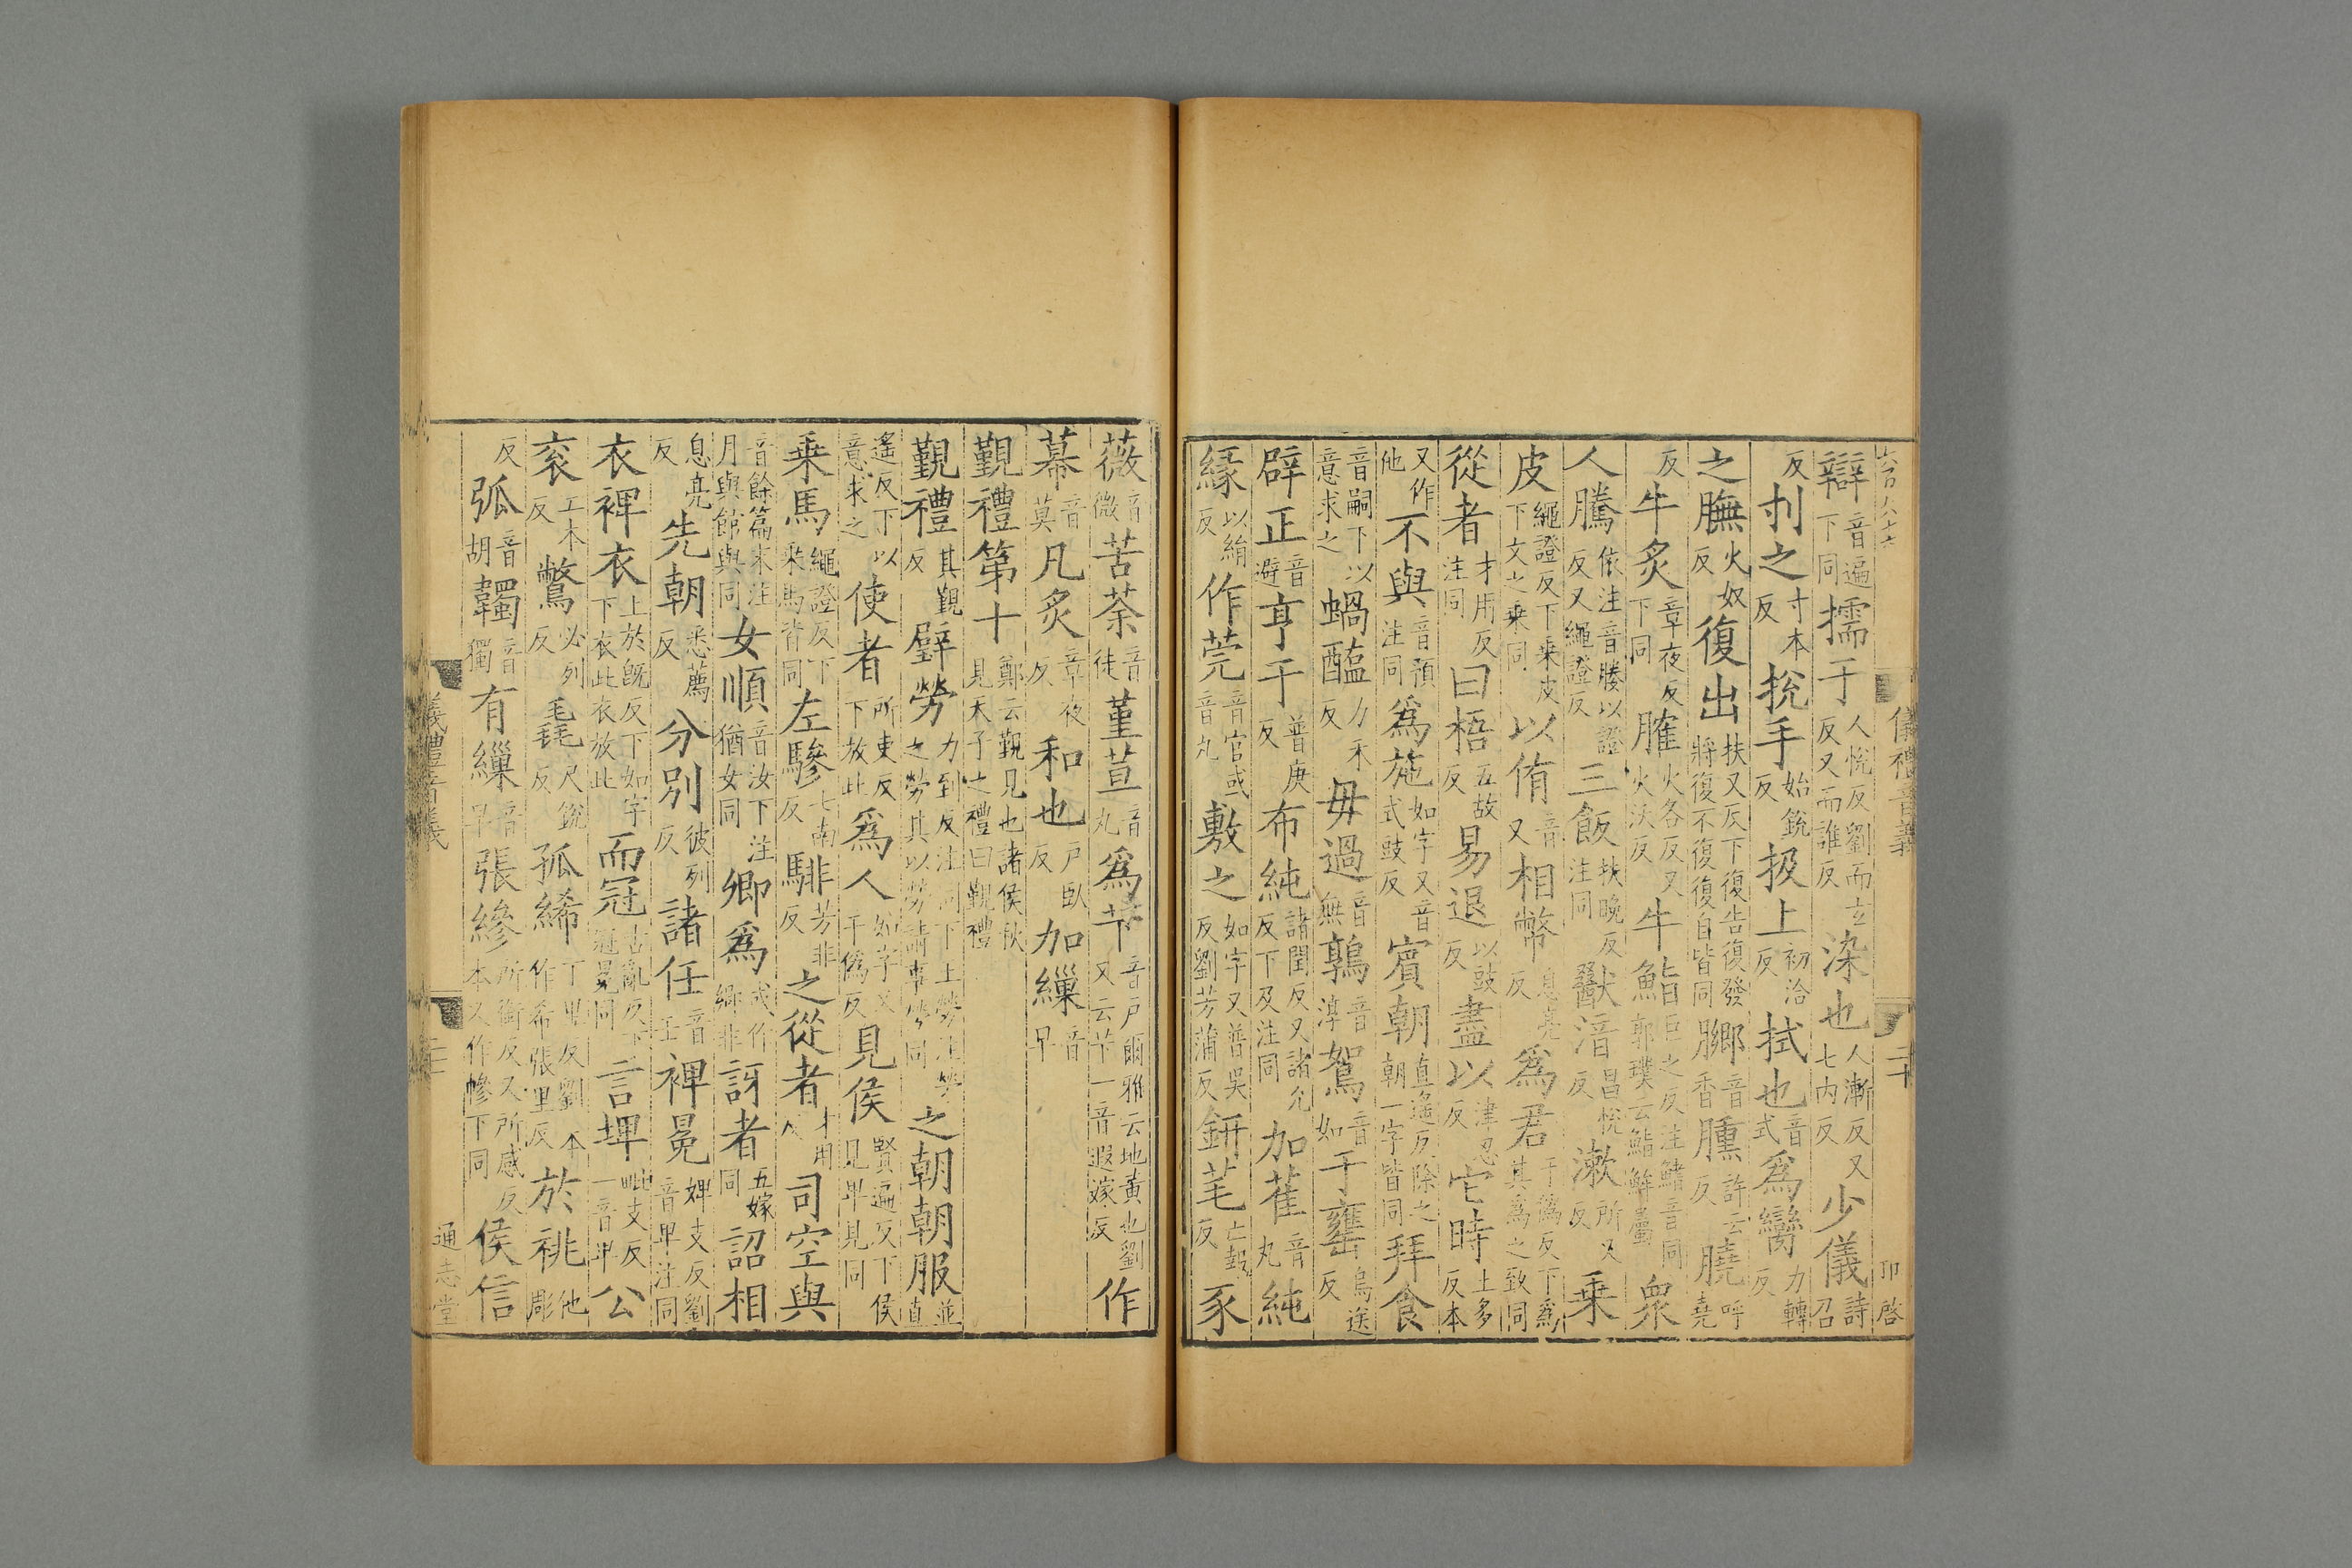 儀禮音義 二十 卬啓
辯音遍下同擩于人悅反劉而玄反又而誰反染也人漸反又七内反少儀詩召
反刌之寸本反挩手始銳反扱上初洽反拭也音式爲臠力轉反
之膴火奴反復出扶又反下復告復發將復不復復自皆同膷音香臐許云反膮呼堯
反牛炙章夜反下同臛火各反又火沃反牛鮨巨之反注鰭音同郭璞云鮨鮓屬衆
人騰依注音媵以證反又繩證反三飯扶晚反注同㵎湆昌悅反漱所又反乗
皮繩證反下乗皮下文之乗同以侑音又相幣息亮反爲君于僞反下爲其爲之致同
從者才用反注同曰梧五故反易退以豉反盡以津忍反它時上多反本
又作他不與音預注同爲施如字又音式豉反賓朝直遙反除之朝一字皆同拜食
音嗣下以意求之蝸醢力禾反毋過音無鶉音淳鴽音如于罋烏送反
辟正音避亨于普庚反布純諸閏反又諸允反下及注同加萑音丸純
緣以絹反作莞音官或音丸敷之如字又普吳反劉芳蒲反鈃芼亡報反豕
薇音微苦荼音徒堇荁音丸爲芐音戶爾雅云地黃也劉又云芐一音遐嫁反作
幕音莫凡炙章夜反和也戶臥反加繅音早
覲禮第十鄭云覲見也諸侯秋見天子之禮曰覲禮
覲禮其覲反璧勞力到反注同下上勞注勞之勞其以勞請事勞同之朝朝服並直
遙反下以意求之使者所吏反下放此爲人如字又于僞反見侯賢遍反下侯見卑見同
乗馬繩證反下乗馬皆同左驂七南反騑芳非反之從者才用反司空與
音餘篇末注月與館與同女順音汝下注猶女同卿爲或作鄉非訝者五嫁反同詔相
息亮反先朝悉薦反分別彼列反諸任音壬裨冕婢支反劉音卑注同
衣裨衣上於旣反下如字下衣此衣放此而冠古亂反下冠冕同言埤婢支反一音卑公
衮工本反鷩必列反毳尺銳反孤絺丁里反劉本作希張里反於祧他彫
反弧音胡韣音獨有繅音早張縿所銜反又所感反本又作幓下同侯信
儀禮音義 二十 通志堂